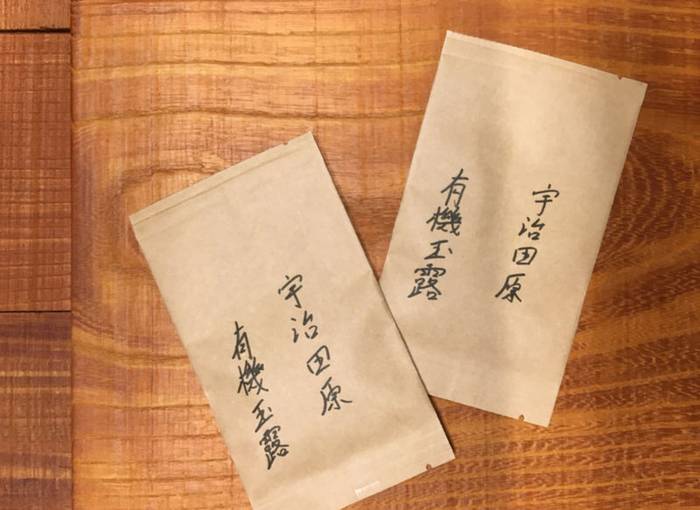 宇治田原
有機玉露
宇治田原
有機玉露